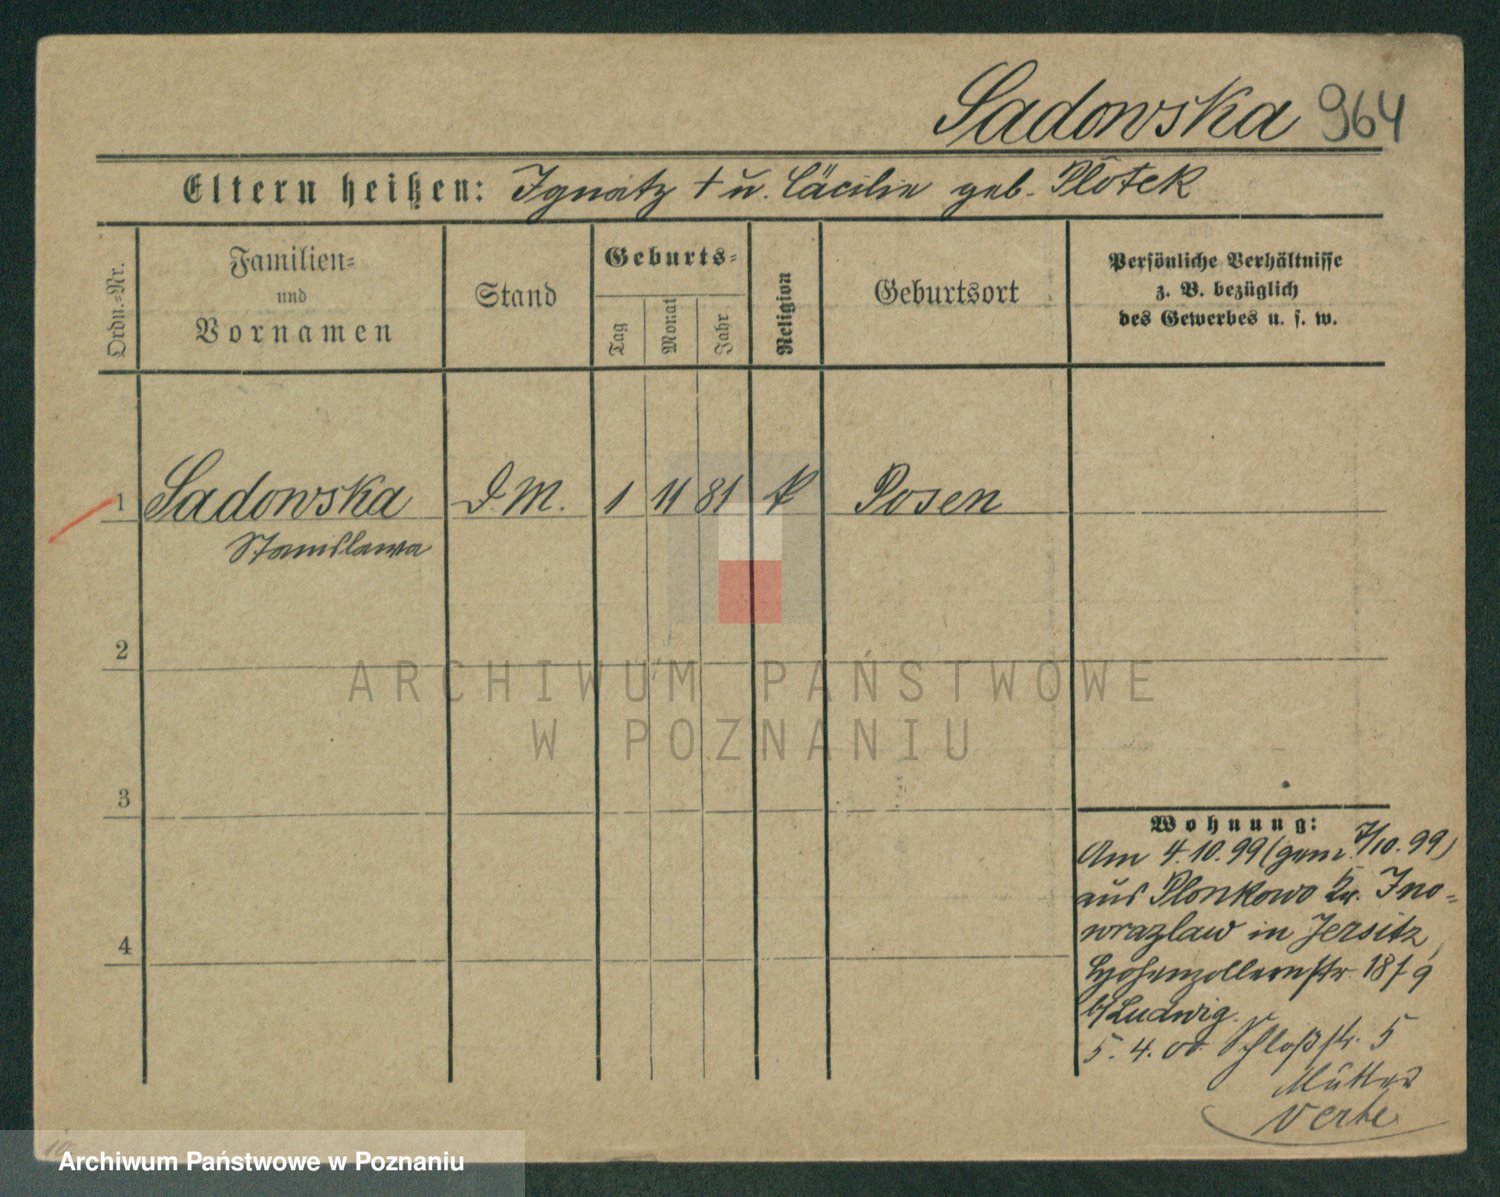 Sadowska 964
Eltern heißen: Ignatz † u. Cäcilie geb. Plotek
Ordn.-Nr.
Familien-
und
Vornamen
Stand
Geburts-
Tag
Monat
Jahr
Religion
Geburtsort
Persönliche Verhältnisse
z. B. bezüglich
des Gewerbes u. s. w.
1 Sadowska D. M. 1 11 81 k Posen
Stanislawa
2
ARCHIWUM PAŃSTWOWE
W POZNANIU
3
4
Wohnung:
Am 4.10.99 (gem. 7/10.99)
aus Plonkowo Kr. Ino-
wrazlaw in Jersitz,
Hohenzollernstr. 18
b/Ludwig.
5. 4. 00. Schloßstr. 5
Mutter
verte
Archiwum Państwowe w Poznaniu